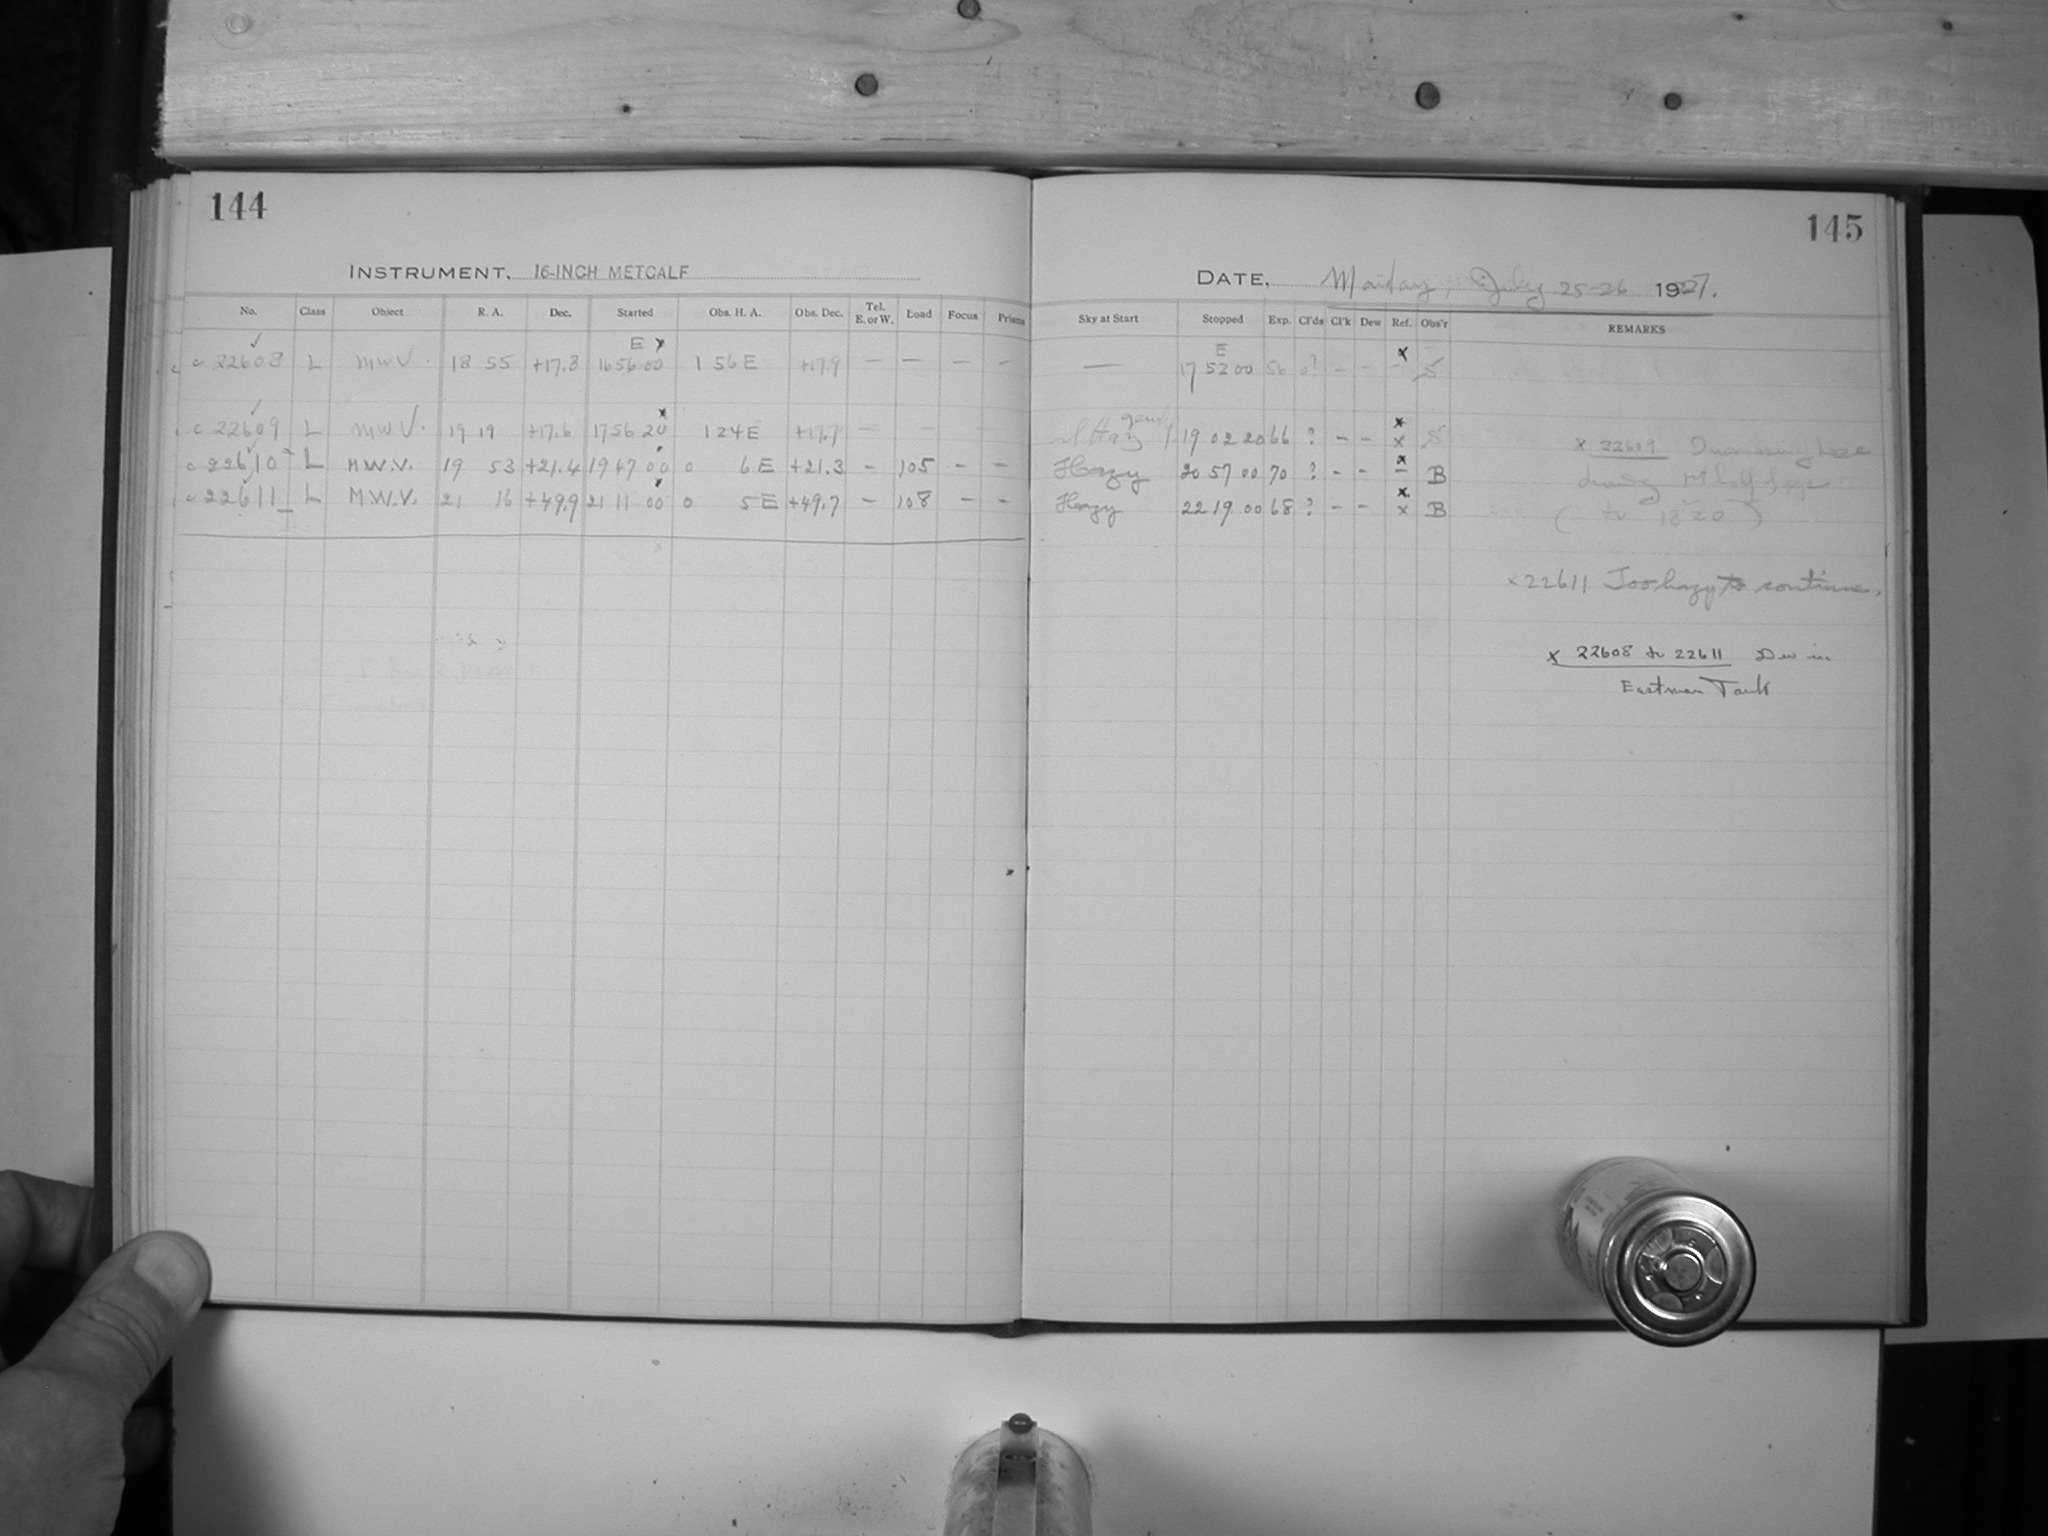 144
INSTRUMENT, 16-INCH METCALF
No. Class Object R. A. Dec. Started Obs. H. A. Obs. Dec. Tel. E. or W. Load Focus Prisms
E x
c 22608 L MWV. 18 55 +17.8 16 56 00 1 56 E +17.9 — — — —
x
c 22609 L MWV. 19 19 +17.6 17 56 20 1 24 E +17.7 — — —
c 22610 L M.W.V. 19 53 +21.4 19 47 00 0 6 E +21.3 — 105 — —
c 22611 L M.W.V. 21 16 +49.9 21 11 00 0 5 E +49.7 — 108 — —
145
DATE, Monday, July 25-26 1927.
Sky at Start Stopped Exp. Cl'ds Cl'k Dew Ref. Obs'r REMARKS
E x
— 17 52 00 56 0? – – – S
x
19 02 20 66 ? – – x S
Hazy 20 57 00 70 ? – – – B
Hazy 22 19 00 68 ? – – x B
x 22609 Increasing haze
during
x 22611 Too hazy to continue.
x 22608 to 22611 Dev in
Eastman Tank